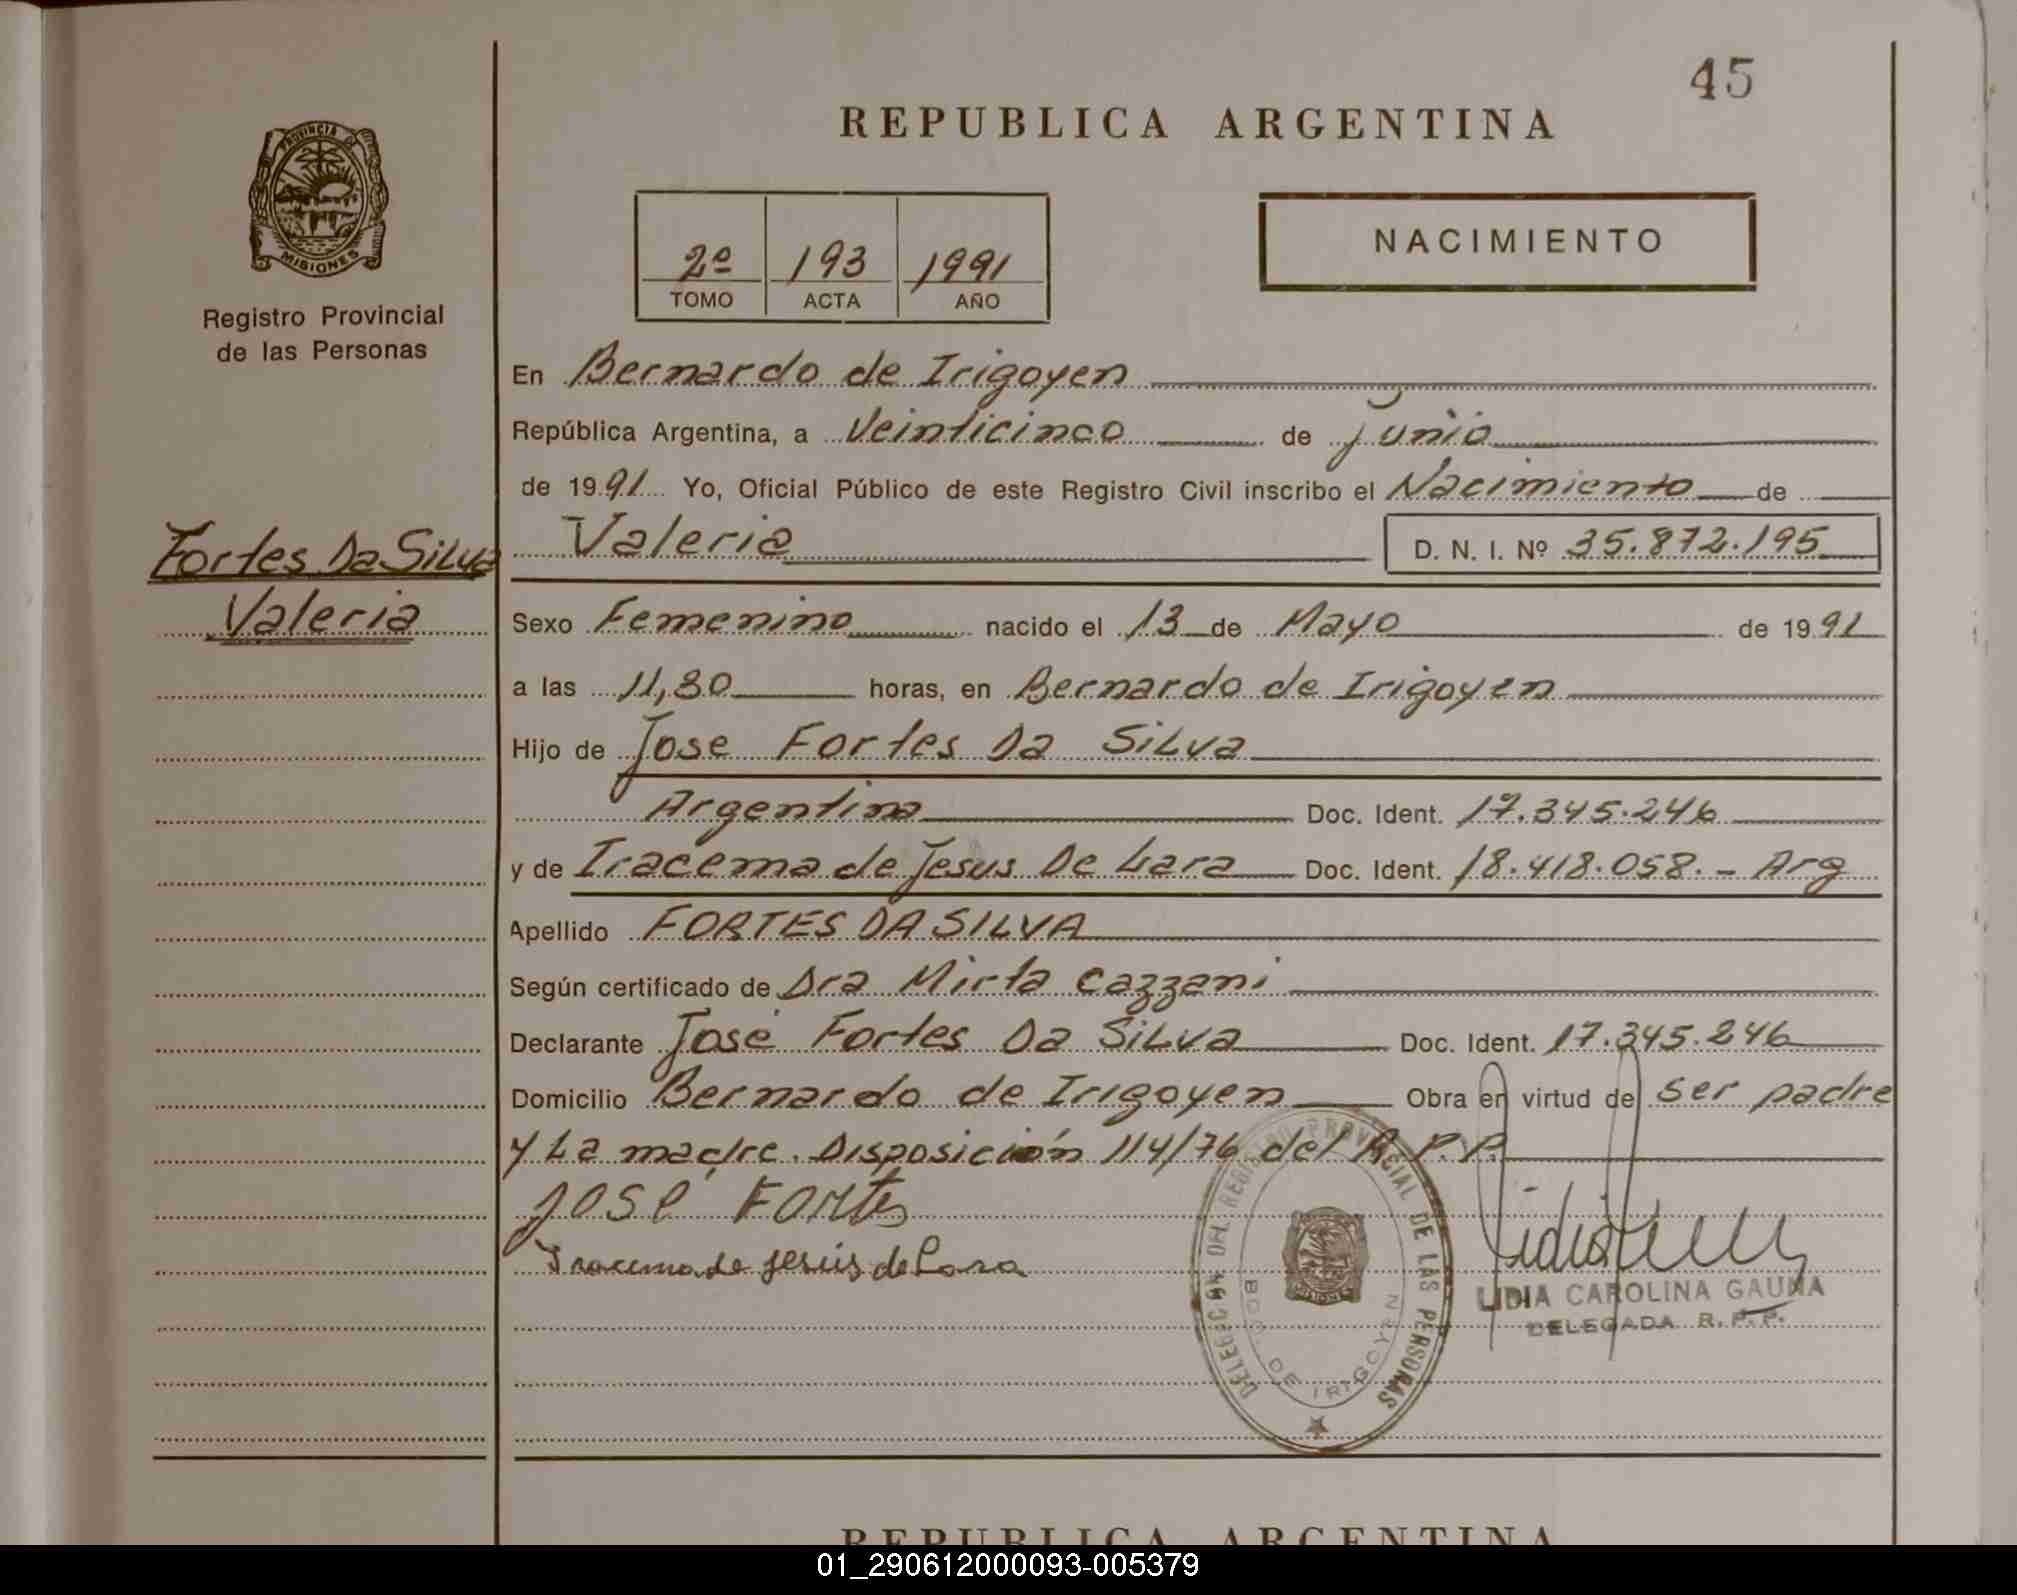 45
REPUBLICA ARGENTINA
PROVINCIA DE
MISIONES
Registro Provincial
de las Personas
2º 193 1991
TOMO ACTA AÑO
NACIMIENTO
En Bernardo de Irigoyen
República Argentina, a Veinticinco de junio
de 1991 Yo, Oficial Público de este Registro Civil inscribo el Nacimiento de
Valeria D. N. I. Nº 35.872.195
Fortes Da Silva
Valeria
Sexo Femenino nacido el 13 de Mayo de 1991
a las 11,30 horas, en Bernardo de Irigoyen
Hijo de Jose Fortes Da Silva
Argentina Doc. Ident. 17.345.246
y de Iracema de Jesus De Lara Doc. Ident. 18.418.058.- Arg
Apellido FORTES DA SILVA
Según certificado de Dra Mirta Cazzani
Declarante José Fortes Da Silva Doc. Ident. 17.345.246
Domicilio Bernardo de Irigoyen Obra en virtud de ser padre
y La madre. Disposición 114/76 del R.P.P.
José Fortes
Iracema de Jesús de Lara
DELEGACION DEL REGISTRO PROVINCIAL DE LAS PERSONAS
MISIONES
BDO. DE IRIGOYEN
LIDIA CAROLINA GAUNA
DELEGADA R.P.P.
REPUBLICA ARGENTINA
01_290612000093-005379